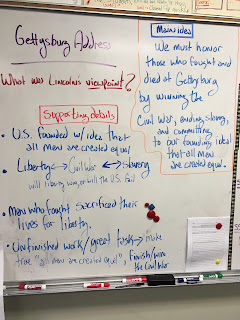 Gettysburg Address
What was Lincoln's viewpoint?
Supporting details
• U.S. founded w/ idea that
all men are created equal
• Liberty → Civil War ↔ slavery
will liberty win, or will the U.S. fail
• Men who fought sacrificed their
lives for liberty.
• Unfinished work/great task → make
true "all men are created equal".
Finish/win
the Civil War
Main idea
We must honor
those who fought and
died at Gettysburg
by winning the
Civil War, ending slavery,
and committing
to our founding ideal
that all men
are created equal.